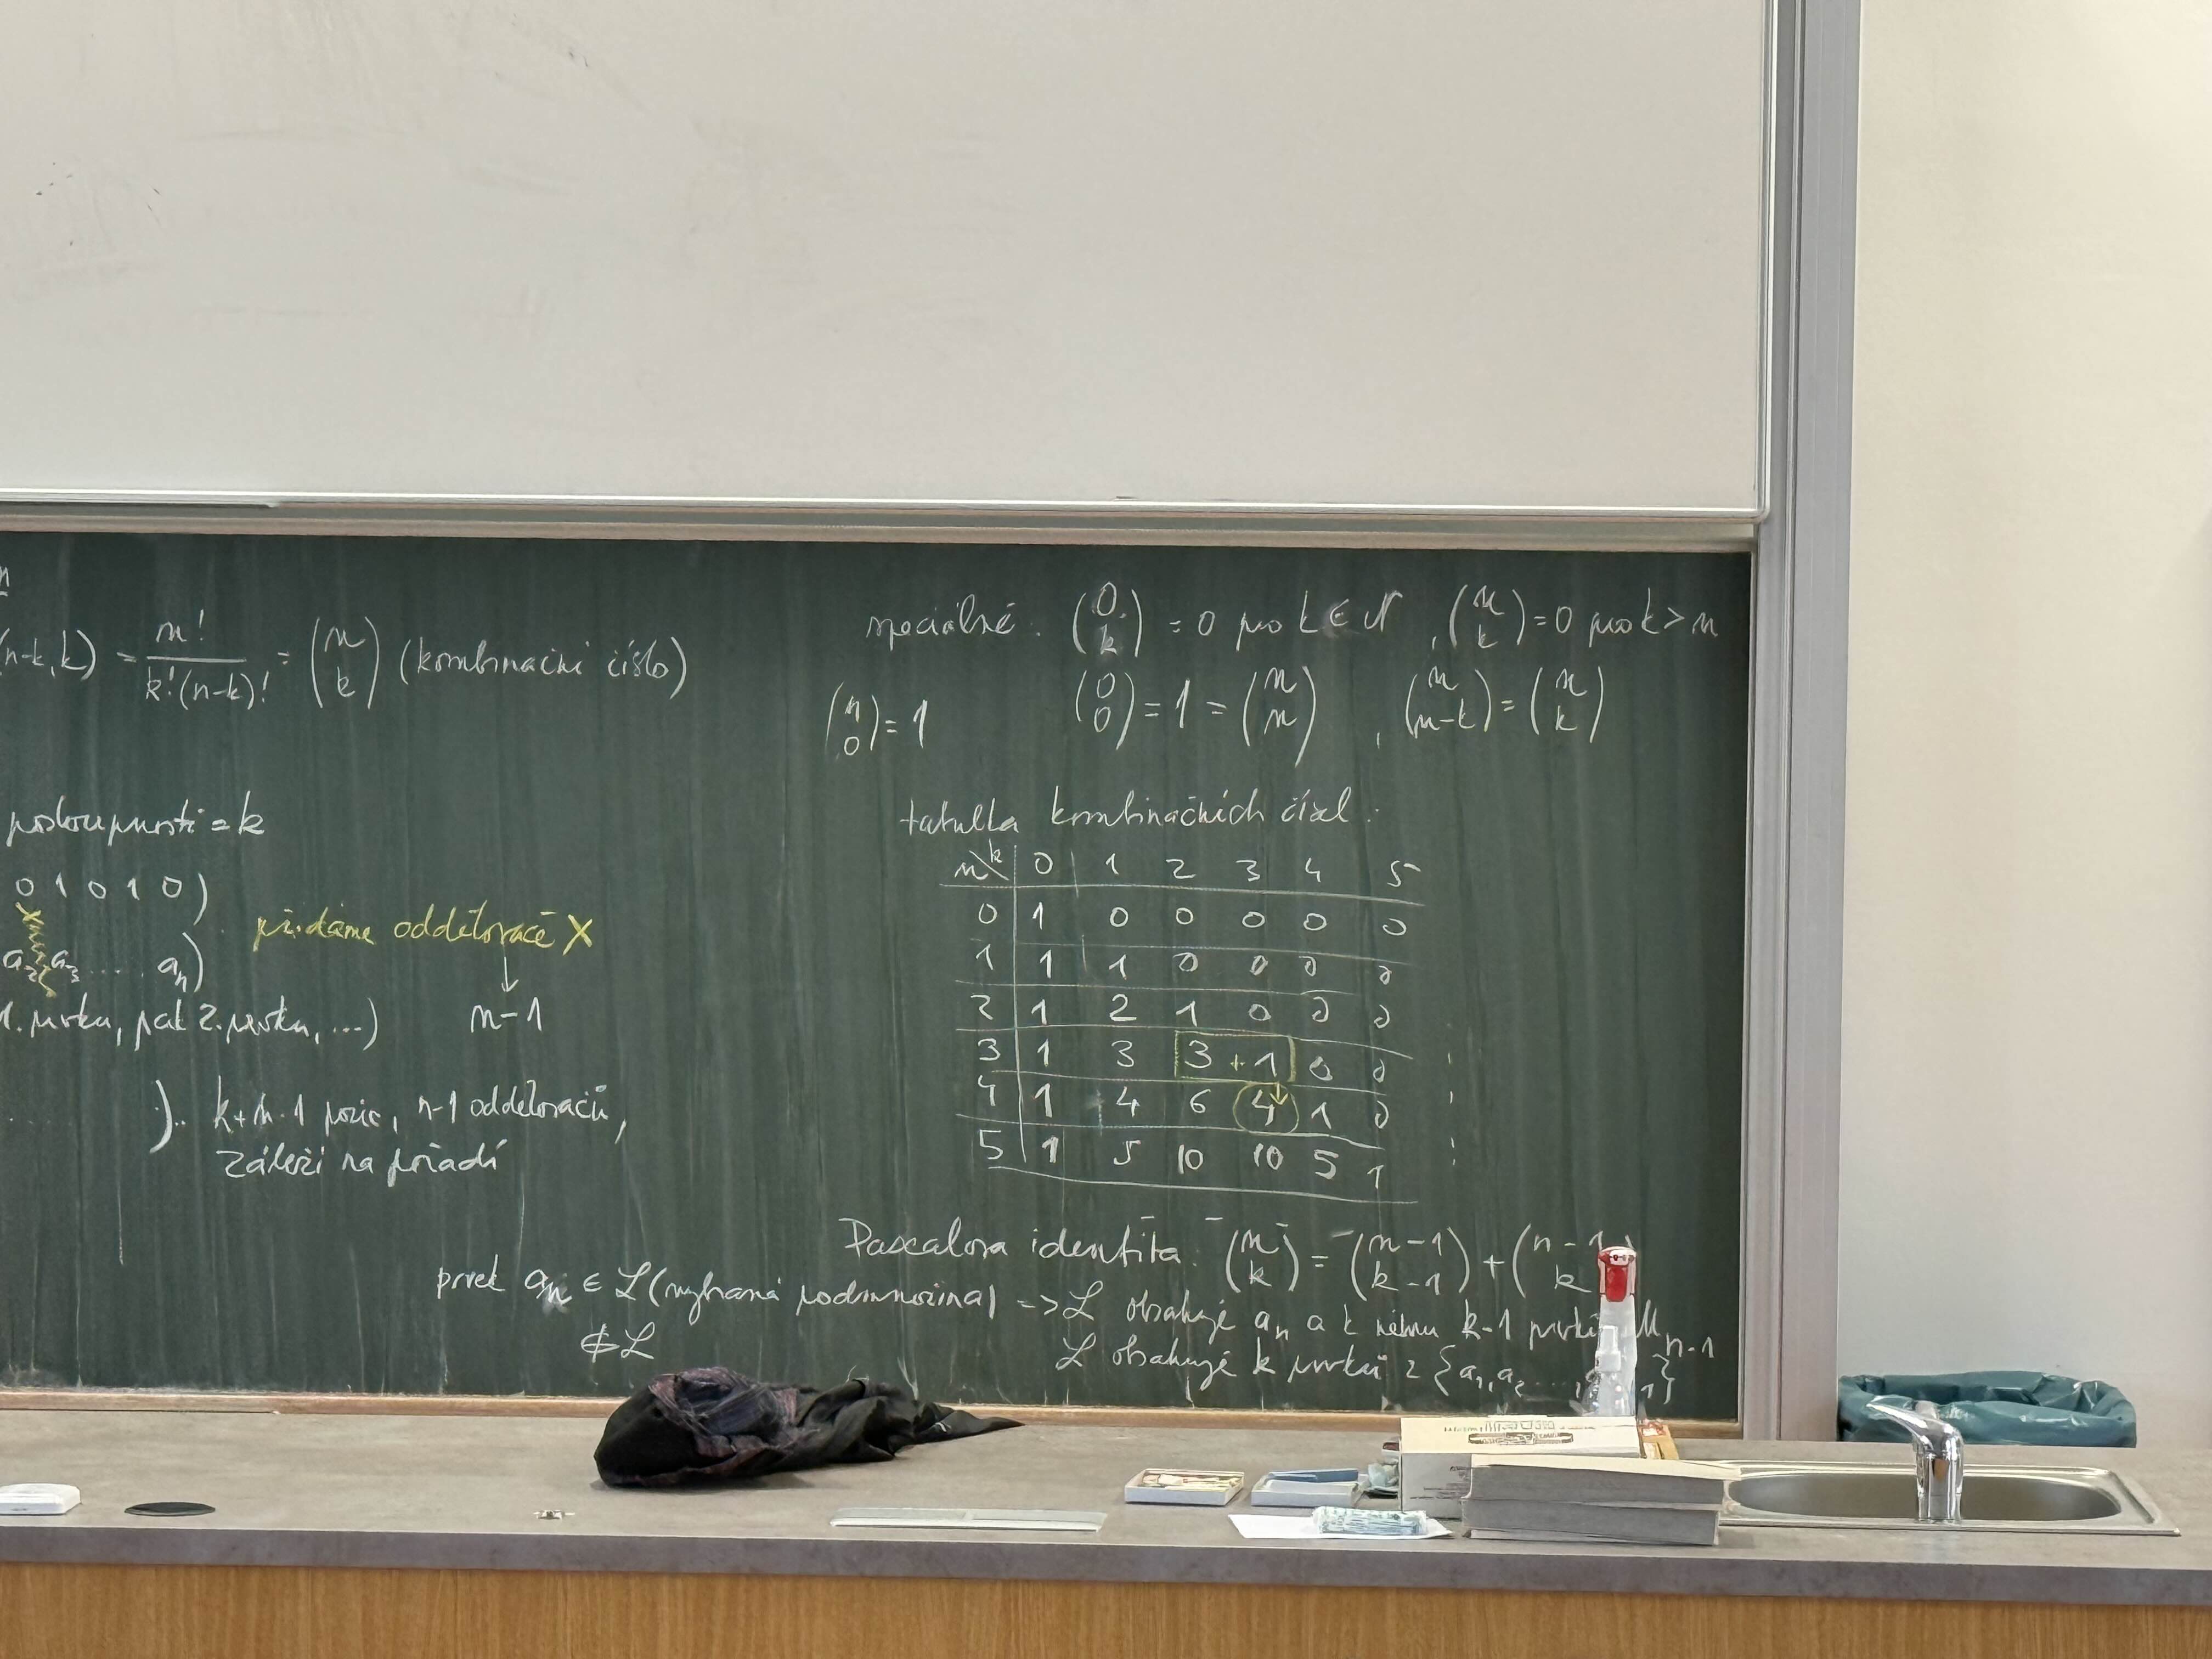 n
(n-k,k) = n!/k!(n-k)! = (n k) (kombinační číslo)
posloupnosti = k
0 1 0 1 0)
x
přidáme oddělovače X
a₂ a₃ .... aₙ)
↓
1. prvku, pak 2. prvku, ...)
n-1
.....
). k+n-1 pozic, n-1 oddělovačů,
záleží na pořadí
speciálně: (0 k) = 0 pro k ∈ N, (n k) = 0 pro k > n
(n 0) = 1 (0 0) = 1 = (n n), (n n-k) = (n k)
tabulka kombinačních čísel:
n\k 0 1 2 3 4 5
0 1 0 0 0 0 0
1 1 1 0 0 0 0
2 1 2 1 0 0 0
3 1 3 3 + 1 0 0
4 1 4 6 4 1 0
5 1 5 10 10 5 1
Pascalova identita: (n k) = (n-1 k-1) + (n-1 k
prvek aₙ ∈ L (vybraná podmnožina) => L obsahuje aₙ a k němu k-1 prvků Mₙ₋₁
∉ L L obsahuje k prvků z {a₁, a₂ ..., 1}